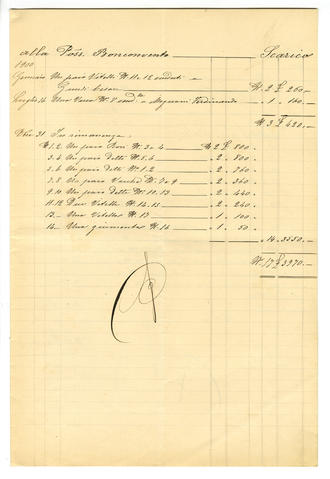 Alla Poss. Bonconvento Scarico
1900
Gennaio Un paio Vitelli N. 11-12 venduti a
Giunti Cesare N. 2 £ 260.-
Luglio 14 Una Vacca N. 8 vend. a Ferdinando " 1 " 160.-
N. 3 £ 420.-
Xbre 31 In rimanenza
N. 1.2 Un paio Bovi N. 3-4 N. 2 £ 800.-
3.4 Un paio Detti N. 5.6 " 2 " 800.-
5.6 Un paio Dette N. 1.2 " 2 " 760.-
7.8 Un paio Vacche N. 7-9 " 2 " 360.-
9.10 Un paio Dette N. 10.13 " 2 " 440.-
11.12 Due Vitelli N. 14.15 " 2 " 240.-
13.- Una Vitella N. 17 " 1 " 100.-
14.- Una N. 16 " 1 " 50.-
" 14 " 3550.-
N. 17 £ 3970.-